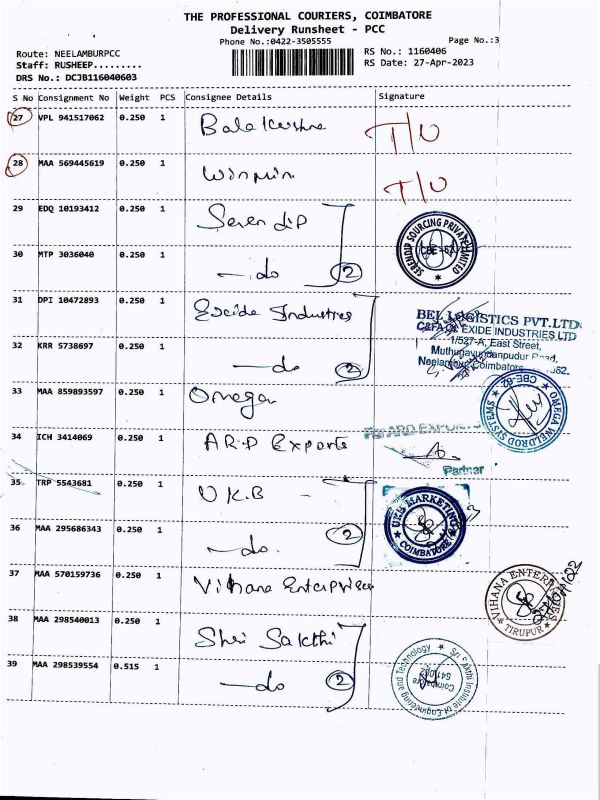 THE PROFESSIONAL COURIERS, COIMBATORE
Delivery Runsheet - PCC
Phone No.:0422-3505555
Page No.:3
Route: NEELAMBURPCC
RS No.: 1160406
Staff: RUSHEEP.........
RS Date: 27-Apr-2023
DRS No.: DCJB116040603
S No Consignment No Weight PCS Consignee Details Signature
27 VPL 941517062 0.250 1 Bala Krishna
28 MAA 569445619 0.250 1 Winmin
29 EDQ 10193412 0.250 1 Seren dip
SERENDIP SOURCING PRIVATE LIMITED
CBE - 62
30 MTP 3036040 0.250 1 — do 2
31 DPI 10472893 0.250 1 Excide Industries
BEL LOGISTICS PVT.LTD
C&FA OF EXIDE INDUSTRIES LTD
1/527-A, East Street,
Muthugavundanpudur Road,
Neelambur, Coimbatore
32 KRR 5738697 0.250 1 — do 2
33 MAA 859893597 0.250 1 Omega
OMEGA WELDROD SYSTEMS
CBE-62
34 ICH 3414069 0.250 1 ARP Exports
Partner
35 TRP 5543681 0.250 1 UKB -
MARKETING
COIMBATORE
36 MAA 295686343 0.250 1 — do. 2
37 MAA 570159736 0.250 1 Vihana Enterprises
VIHANA ENTERPRISES
TIRUPUR
38 MAA 298540013 0.250 1 Shri Sakthi
Institute of Engineering and Technology
Coimbatore
39 MAA 298539554 0.515 1 — do 2